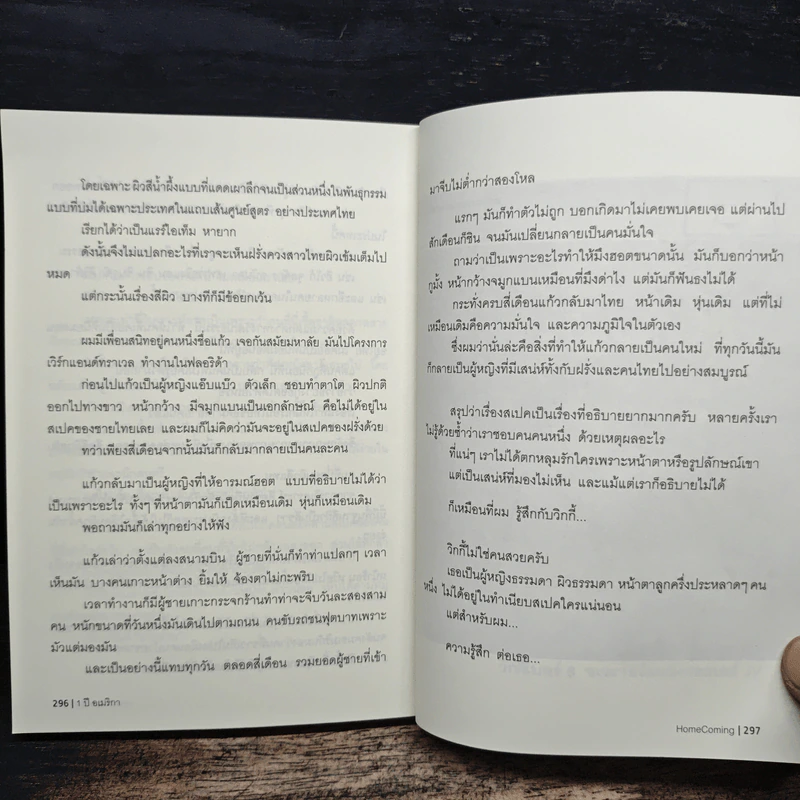 โดยเฉพาะ ผิวสีน้ำผึ้งแบบที่แดดเผาลึกจนเป็นส่วนหนึ่งในพันธุกรรม
แบบที่บ่มได้เฉพาะประเทศในแถบเส้นศูนย์สูตร อย่างประเทศไทย
เรียกได้ว่าเป็นแรร์ไอเท็ม หายาก
ดังนั้นจึงไม่แปลกอะไรที่เราจะเห็นฝรั่งควงสาวไทยผิวเข้มเต็มไป
หมด
แต่กระนั้นเรื่องสีผิว บางทีก็มีข้อยกเว้น
ผมมีเพื่อนสนิทอยู่คนหนึ่งชื่อแก้ว เจอกันสมัยมหาลัย มันไปโครงการ
เวิร์กแอนด์ทราเวล ทำงานในฟลอริด้า
ก่อนไปแก้วเป็นผู้หญิงแอ๊บแบ๊ว ตัวเล็ก ชอบทำตาโต ผิวปกติ
ออกไปทางขาว หน้ากว้าง มีจมูกแบนเป็นเอกลักษณ์ คือไม่ได้อยู่ใน
สเปคของชายไทยเลย และผมก็ไม่คิดว่ามันจะอยู่ในสเปคของฝรั่งด้วย
ทว่าเพียงสี่เดือนจากนั้นมันก็กลับมากลายเป็นคนละคน
แก้วกลับมาเป็นผู้หญิงที่ให้อารมณ์ฮอต แบบที่อธิบายไม่ได้ว่า
เป็นเพราะอะไร ทั้งๆ ที่หน้าตามันก็เป็ดเหมือนเดิม หุ่นก็เหมือนเดิม
พอถามมันก็เล่าทุกอย่างให้ฟัง
แก้วเล่าว่าตั้งแต่ลงสนามบิน ผู้ชายที่นั่นก็ทำท่าแปลกๆ เวลา
เห็นมัน บางคนเกาะหน้าต่าง ยิ้มให้ จ้องตาไม่กะพริบ
เวลาทำงานก็มีผู้ชายเกาะกระจกร้านทำท่าจะจีบวันละสองสาม
คน หนักขนาดที่วันหนึ่งมันเดินไปตามถนน คนขับรถชนฟุตบาทเพราะ
มัวแต่มองมัน
และเป็นอย่างนี้แทบทุกวัน ตลอดสี่เดือน รวมยอดผู้ชายที่เข้า
296 | 1 ปี อเมริกา
มาจีบไม่ต่ำกว่าสองโหล
แรกๆ มันก็ทำตัวไม่ถูก บอกเกิดมาไม่เคยพบเคยเจอ แต่ผ่านไป
สักเดือนก็ชิน จนมันเปลี่ยนกลายเป็นคนมั่นใจ
ถามว่าเป็นเพราะอะไรทำให้มึงฮอตขนาดนั้น มันก็บอกว่าหน้า
กูมั้ง หน้ากว้างจมูกแบนเหมือนที่มึงด่าไง แต่มันก็ฟันธงไม่ได้
กระทั่งครบสี่เดือนแก้วกลับมาไทย หน้าเดิม หุ่นเดิม แต่ที่ไม่
เหมือนเดิมคือความมั่นใจ และความภูมิใจในตัวเอง
ซึ่งผมว่านั่นล่ะคือสิ่งที่ทำให้แก้วกลายเป็นคนใหม่ ที่ทุกวันนี้มัน
ก็กลายเป็นผู้หญิงที่มีเสน่ห์ทั้งกับฝรั่งและคนไทยไปอย่างสมบูรณ์
สรุปว่าเรื่องสเปคเป็นเรื่องที่อธิบายยากมากครับ หลายครั้งเรา
ไม่รู้ด้วยซ้ำว่าเราชอบคนคนหนึ่ง ด้วยเหตุผลอะไร
ที่แน่ๆ เราไม่ได้ตกหลุมรักใครเพราะหน้าตาหรือรูปลักษณ์เขา
แต่เป็นเสน่ห์ที่มองไม่เห็น และแม้แต่เราก็อธิบายไม่ได้
ก็เหมือนที่ผม รู้สึกกับวิกกี้...
วิกกี้ไม่ใช่คนสวยครับ
เธอเป็นผู้หญิงธรรมดา ผิวธรรมดา หน้าตาลูกครึ่งประหลาดๆ คน
หนึ่ง ไม่ได้อยู่ในทำเนียบสเปคใครแน่นอน
แต่สำหรับผม...
ความรู้สึก ต่อเธอ...
HomeComing | 297